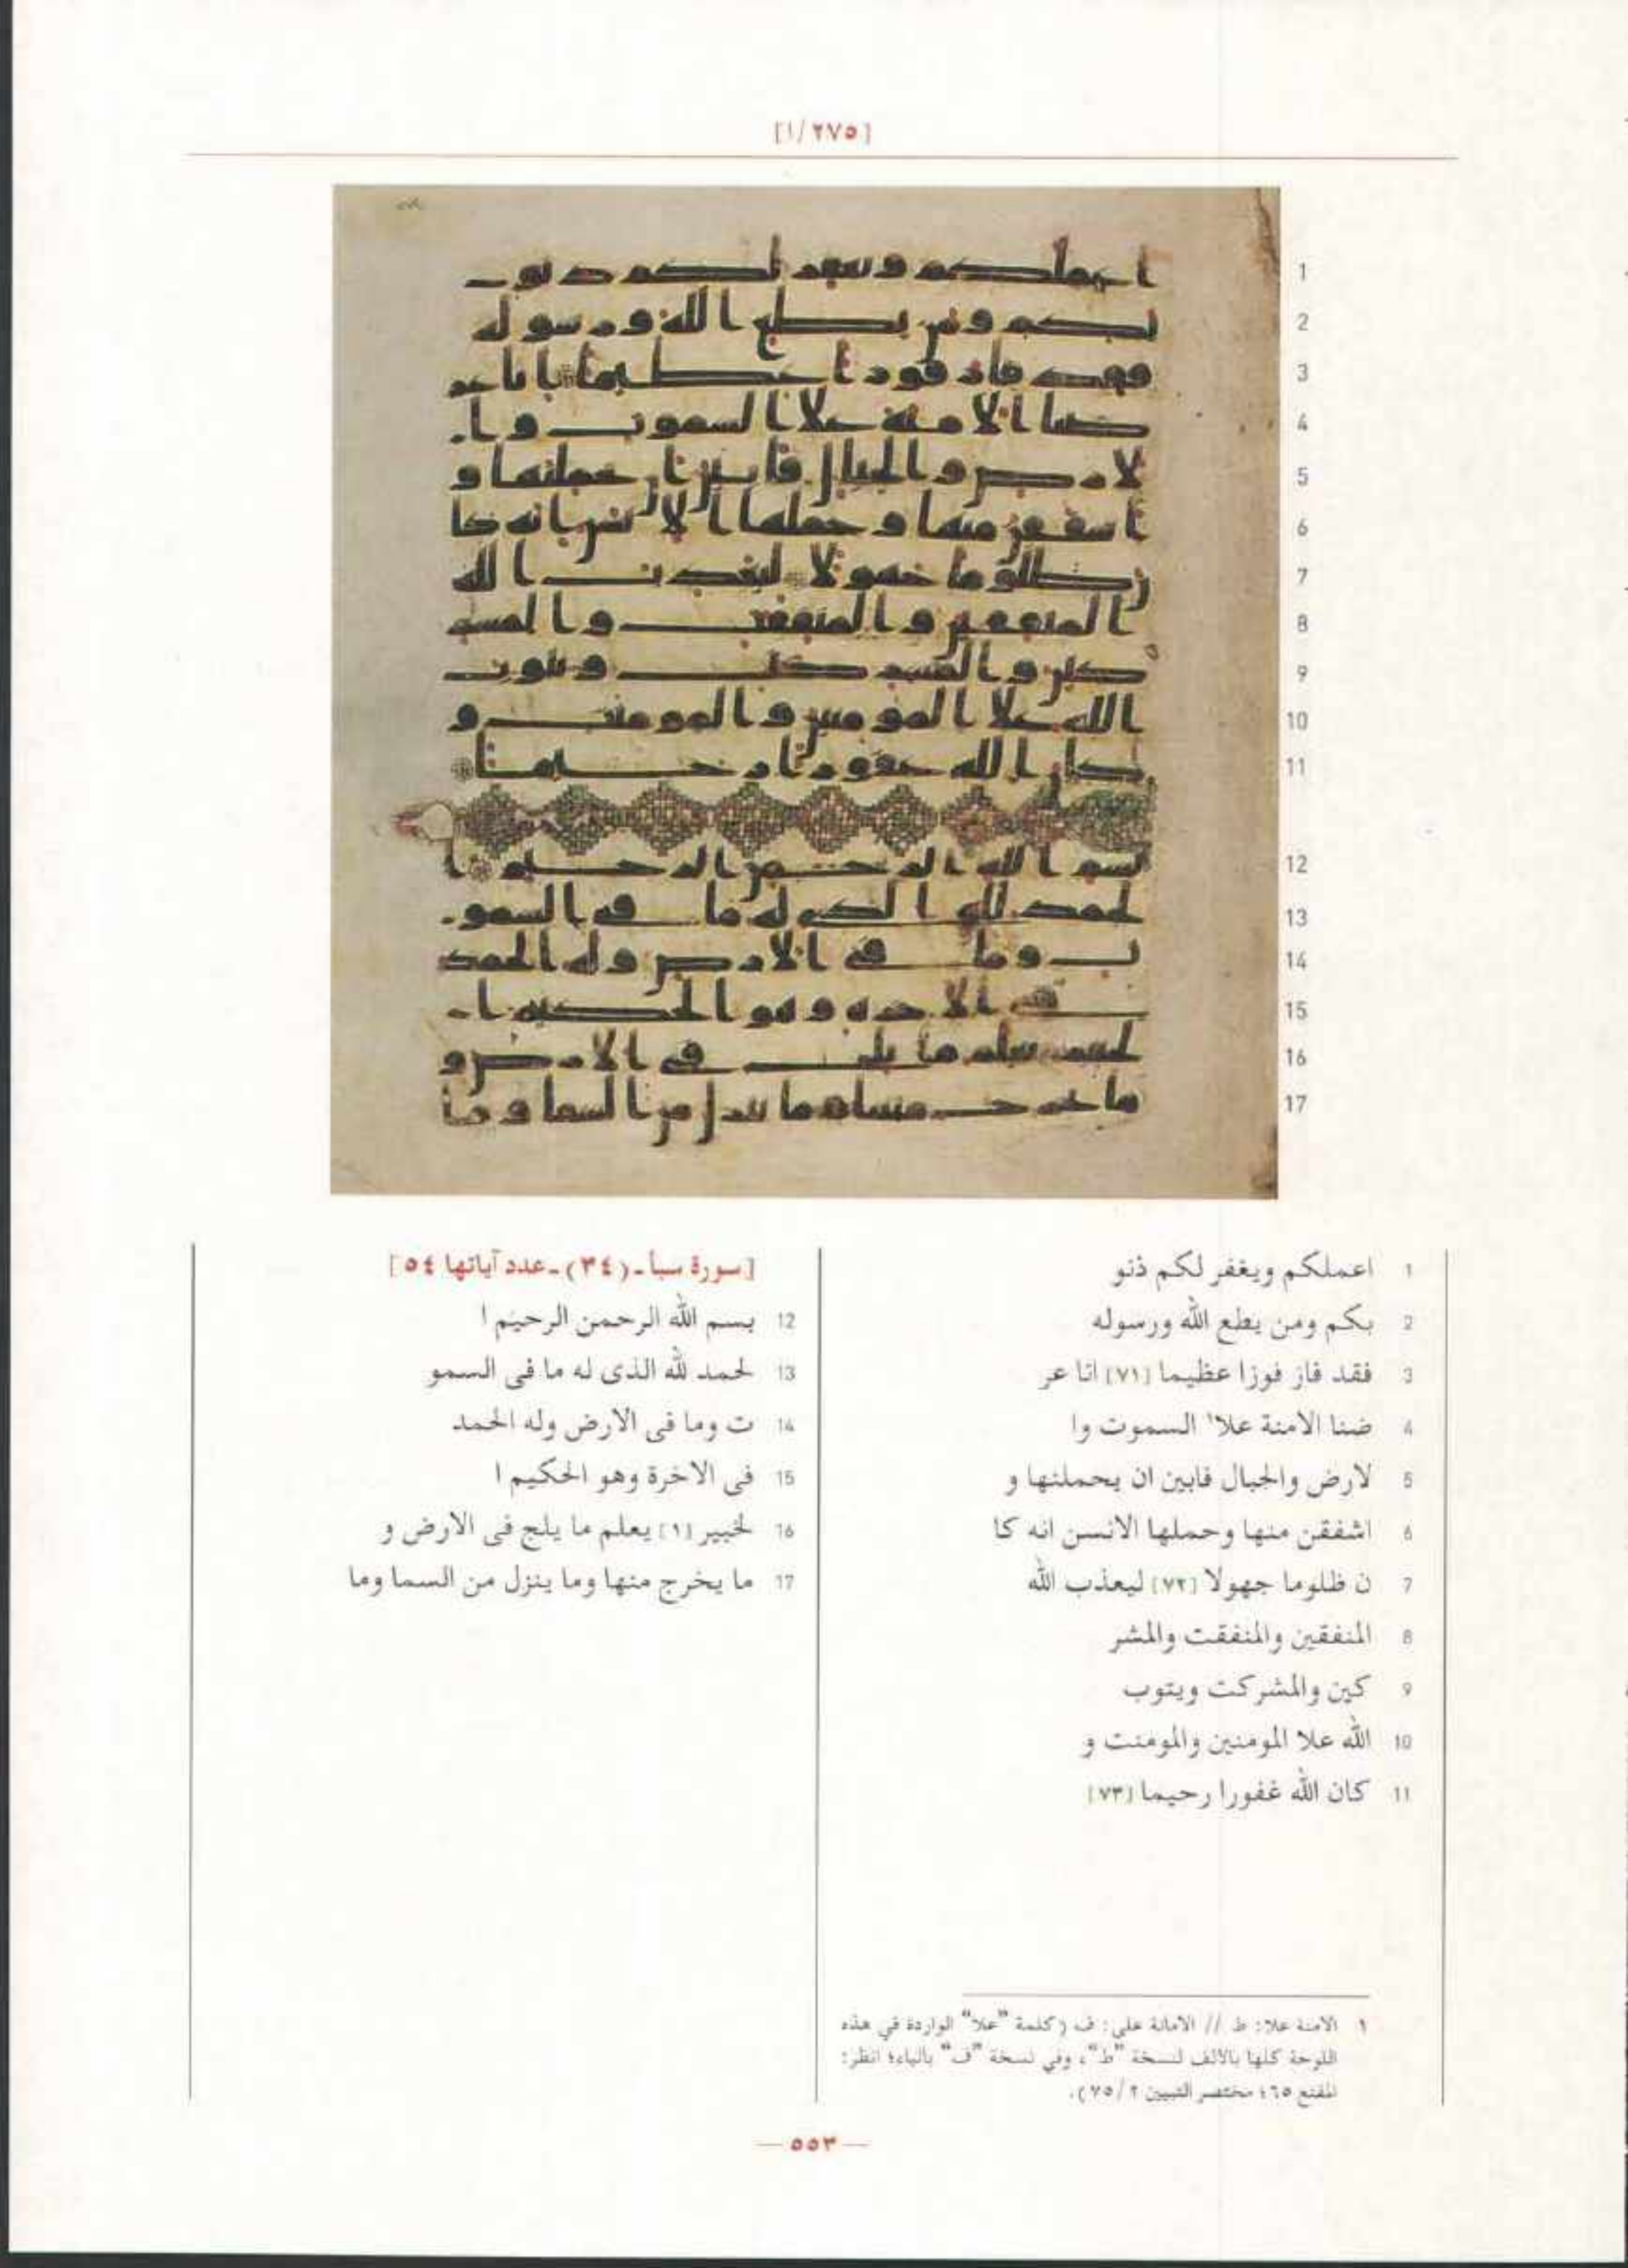 [٢٧٥/١]
1
2
3
4
5
6
7
8
9
10
11
12
13
14
15
16
17
1 اعملكم ويغفر لكم ذنو
2 بكم ومن يطع الله ورسوله
3 فقد فاز فوزا عظيما [٧١] انا عر
4 ضنا الامنة علا١ السموت وا
5 لارض والجبال فابين ان يحملنها و
6 اشفقن منها وحملها الانسن انه كا
7 ن ظلوما جهولا [٧٢] ليعذب الله
8 المنفقين والمنفقت والمشر
9 كين والمشركت ويتوب
10 الله علا المومنين والمومنت و
11 كان الله غفورا رحيما [٧٣]
[سورة سبأ ـ (٣٤) ـ عدد آياتها ٥٤]
12 بسم الله الرحمن الرحيم ا
13 لحمد لله الذى له ما فى السمو
14 ت وما فى الارض وله الحمد
15 فى الاخرة وهو الحكيم ا
16 لخبير [١] يعلم ما يلج فى الارض و
17 ما يخرج منها وما ينزل من السما وما
١ الامنة علا: ط // الامانة على: ف (كلمة "علا" الواردة في هذه
اللوحة كلها بالألف لنسخة "ط"، وفي نسخة "ف" بالياء؛ انظر:
المقنع ٦٥؛ مختصر التبيين ٢/ ٧٥).
— ٥٥٣ —